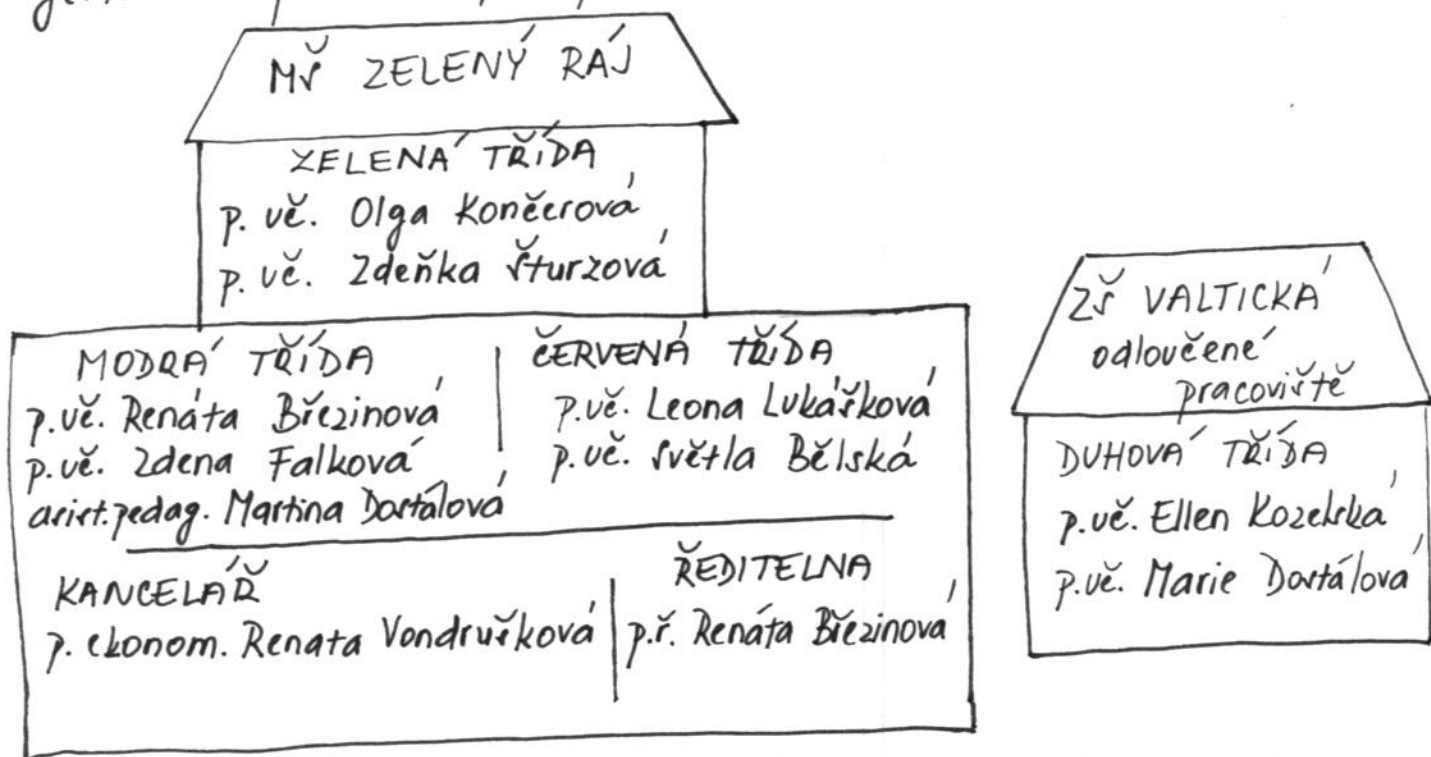 MŠ ZELENÝ RÁJ
ZELENÁ TŘÍDA
p. uč. Olga Konečerová
p. uč. Zdeňka Šturzová
MODRÁ TŘÍDA
p. uč. Renáta Březinová
p. uč. Zdena Falková
asist. pedag. Martina Dostálová
ČERVENÁ TŘÍDA
p. uč. Leona Lukášková
p. uč. Světla Bělská
KANCELÁŘ
p. ekonom. Renata Vondrušková
ŘEDITELNA
p. ř. Renáta Březinová
ZŠ VALTICKÁ
odloučené
pracoviště
DUHOVÁ TŘÍDA
p. uč. Ellen Kozelská
p. uč. Marie Dostálová